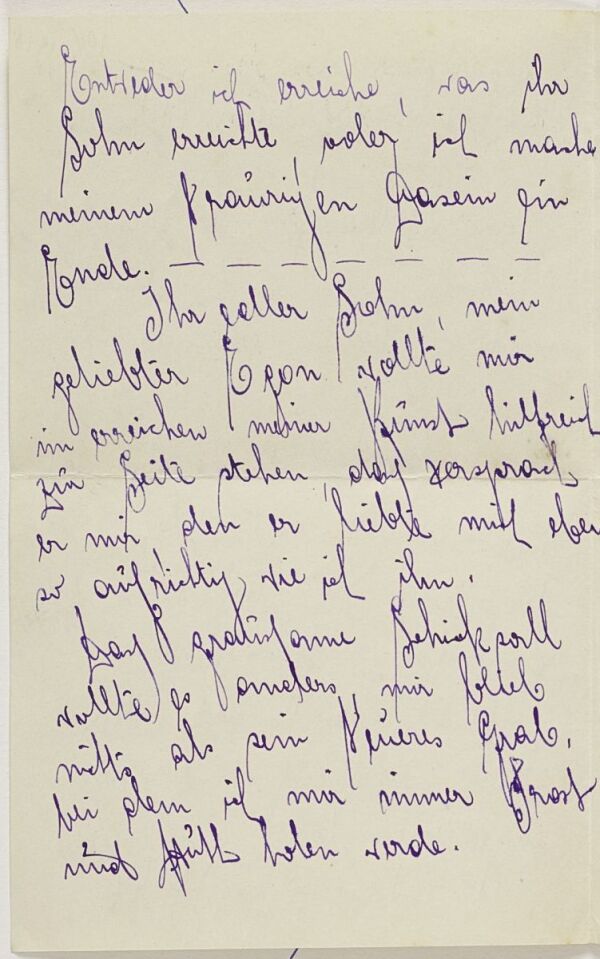 Entweder ich erreiche, was ihr
Sohn erreichte, oder ich mache
meinem traurigen Dasein ein
Ende. — — — — — — —
Ihr edler Sohn, mein
geliebter Egon wollte mir
im erreichen meiner Kunst hilfreich
zur Seite stehen, das versprach
er mir den er liebte mich eben
so aufrichtig wie ich ihn.
Das grausame Schicksall
wollte es anders, mir blieb
nichts als sein teueres Grab,
bei dem ich mir immer Trost
und holen werde.